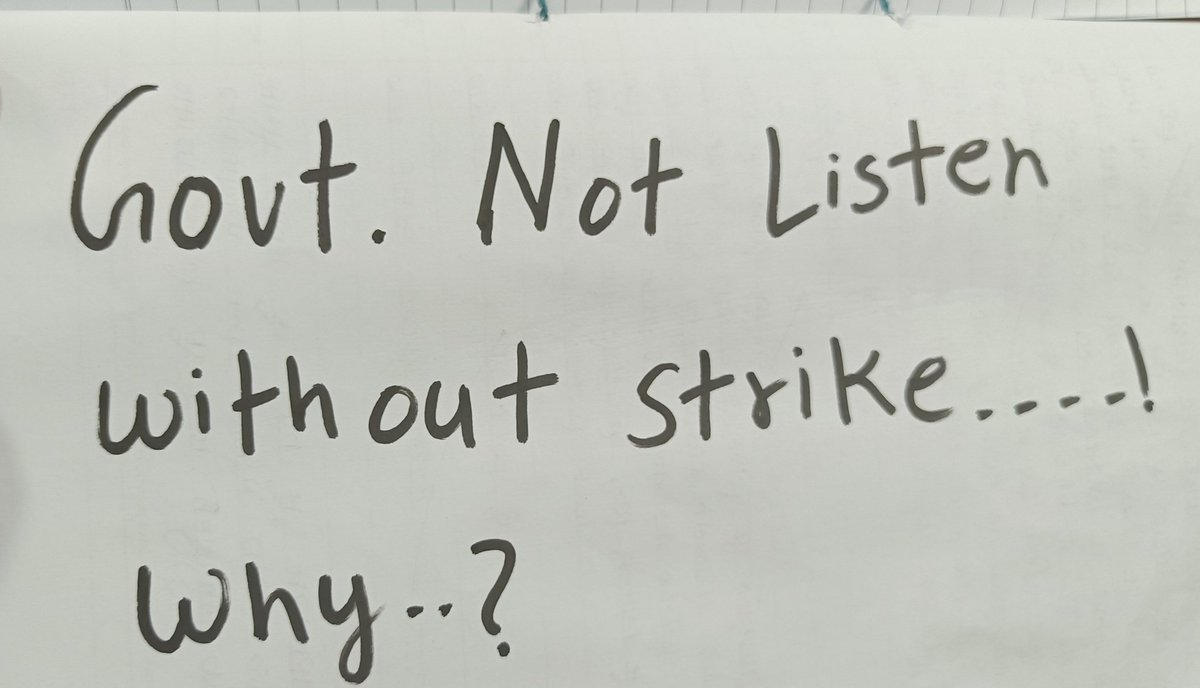 Govt. Not Listen
without strike....!
Why..?